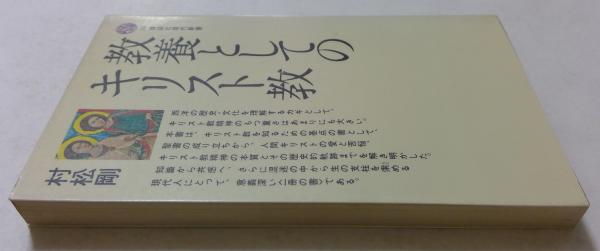 講談社現代新書
教養としての
キリスト教
西洋の歴史・文化を理解するカギとして、
キリスト教精神のもつ重さはあまりにも大きい。
本書は、キリスト教を知るための基点の書として、
聖書の成り立ちから、人間キリストの愛と苦悩、
キリスト教精神の本質とその歴史的展開までを解き明かした。
知識から共感へ、さらに混迷の中から生の支柱を求める
現代人にとって、意義深い一冊の書である。
村松剛